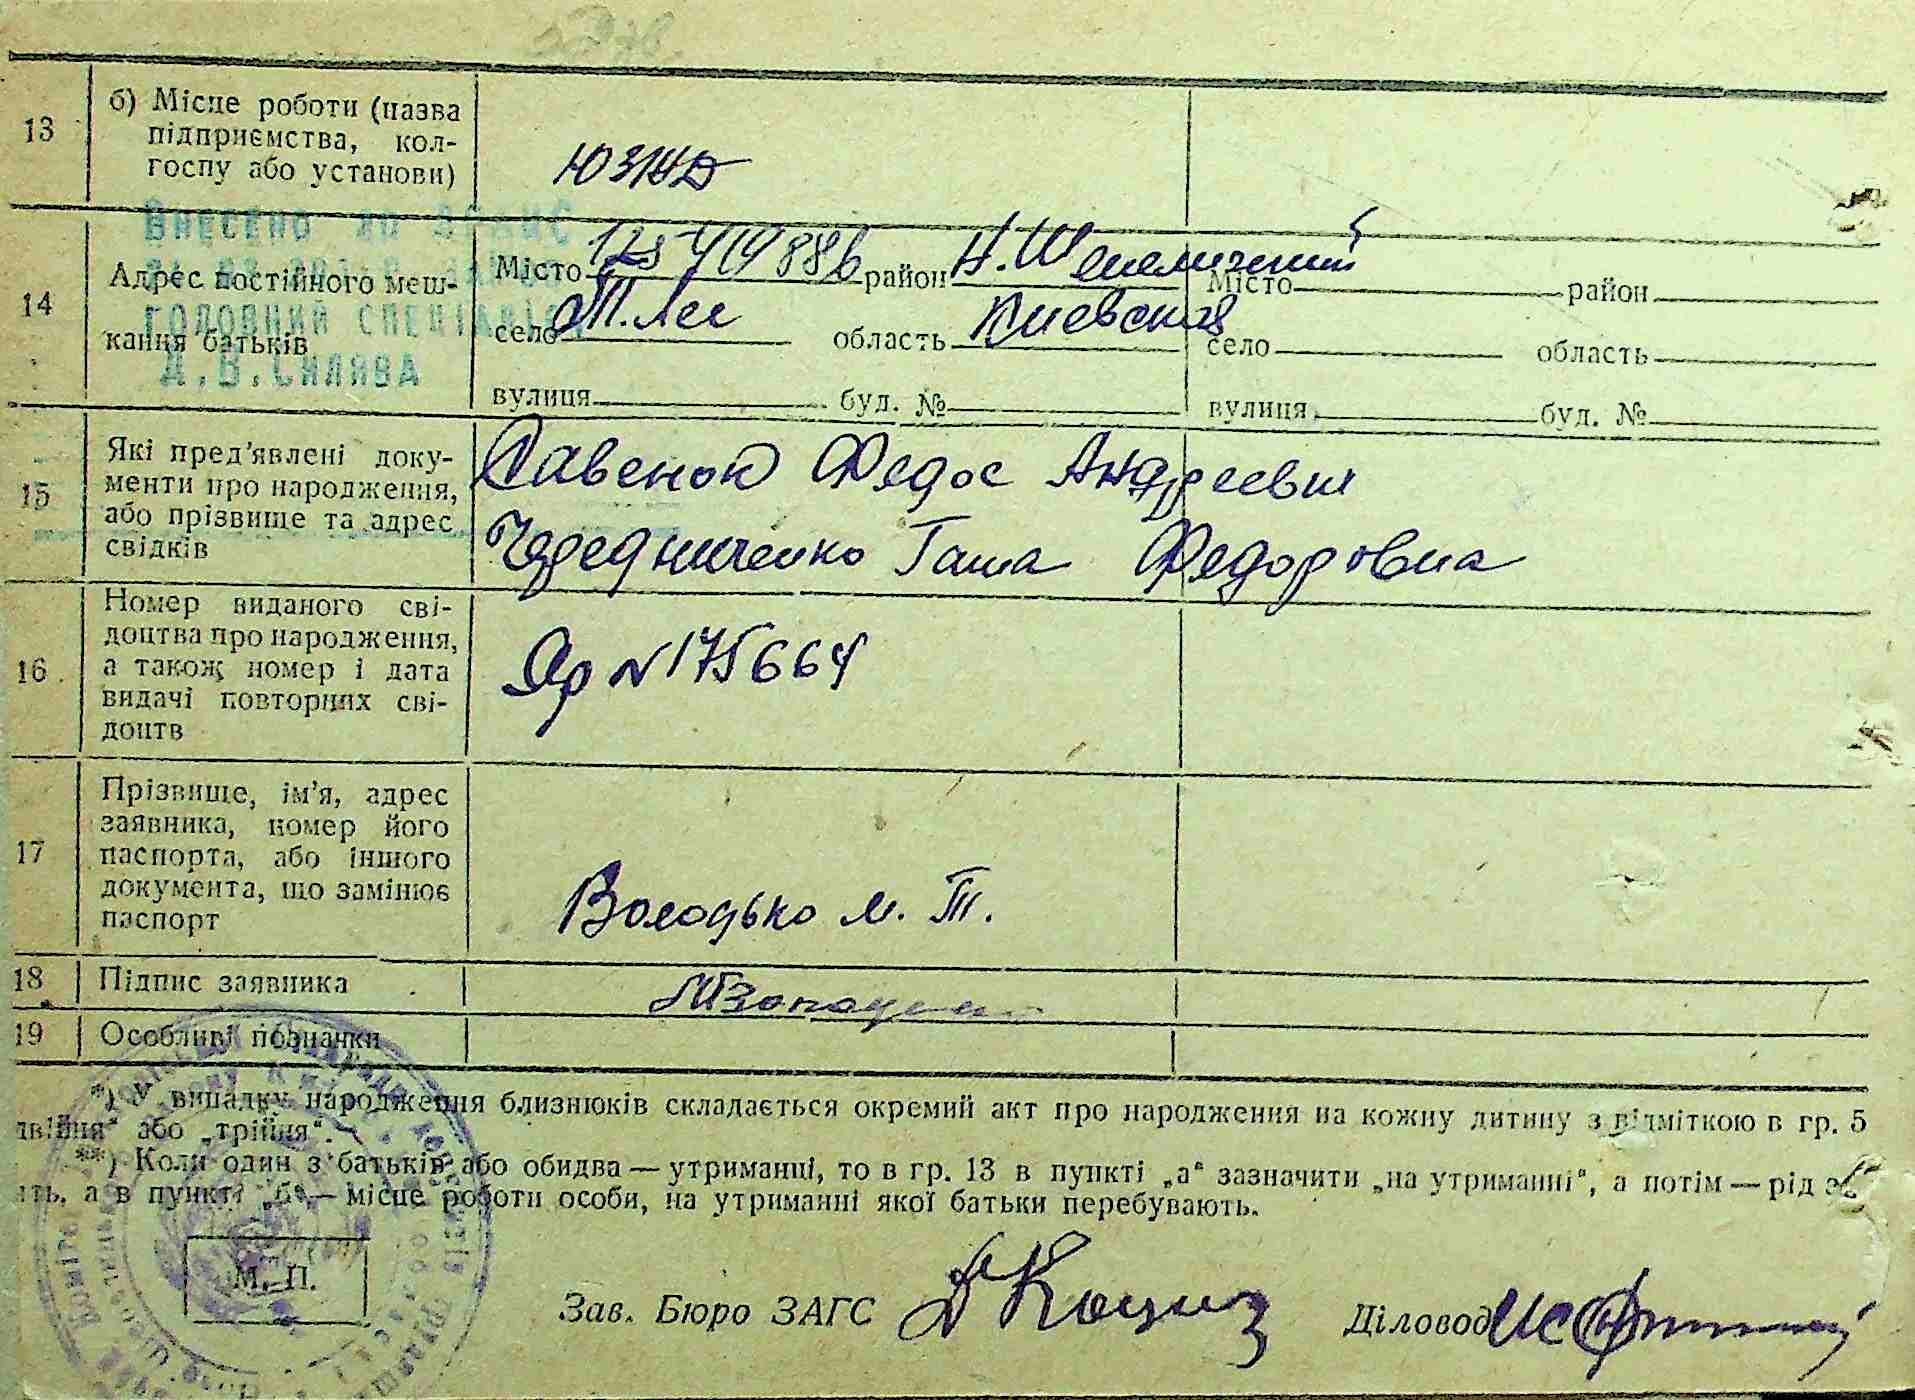 13
б) Місце роботи (назва
підприємства, кол-
госпу або установи)
ЮЗЖД
14
Адрес постійного меш-
кання батьків
Внесено до
головний спеціаліст
Д.В.Силява
Місто район Н. Шепеличский
село Т. лес область Киевская
вулиця буд. №
Місто район
село область
вулиця буд. №
15
Які пред'явлені доку-
менти про народження,
або прізвище та адрес
свідків
Савенок Федос Андреевич
Чередниченко Гаша Федоровна
16
Номер виданого сві-
доцтва про народження,
а також номер і дата
видачі повторних сві-
доцтв
Яр № 175664
17
Прізвище, ім'я, адрес
заявника, номер його
паспорта, або іншого
документа, що замінює
паспорт
Володько М. Т.
18
Підпис заявника
19
Особливі познанки
*) У випадку народження близнюків складається окремий акт про народження на кожну дитину з відміткою в гр. 5
двійня" або „трійня".
**) Коли один з батьків або обидва — утриманці, то в гр. 13 в пункті „а" зазначити „на утриманні", а потім — рід
ть, а в пункті „б" — місце роботи особи, на утриманні якої батьки перебувають.
М. П.
Зав. Бюро ЗАГС
Діловод